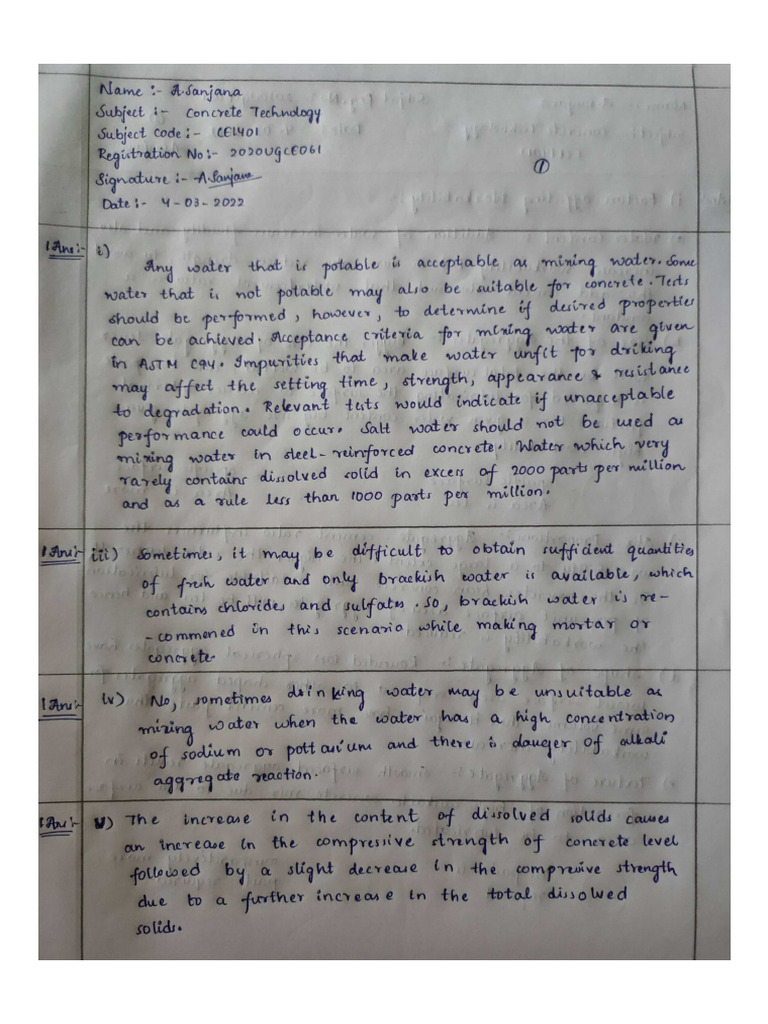 Name :- A.Sanjana
Subject :- Concrete Technology
Subject code :- CE1401
Registration No:- 2020UGCE061
Signature :- A.Sanjana
Date :- 4-03-2022
1
1 Ans:- i)
Any water that is potable is acceptable as mixing water. Some
water that is not potable may also be suitable for concrete. Tests
should be performed, however, to determine if desired properties
can be achieved. Acceptance criteria for mixing water are given
in ASTM C94. Impurities that make water unfit for driking
may affect the setting time, strength, appearance & resistance
to degradation. Relevant tests would indicate if unacceptable
performance could occur. Salt water should not be used as
mixing water in steel-reinforced concrete. Water which very
rarely contains dissolved solid in excess of 2000 parts per million
and as a rule less than 1000 parts per million.
1 Ans:- iii) Sometimes, it may be difficult to obtain sufficient quantities
of fresh water and only brackish water is available, which
contains chlorides and sulfates. So, brackish water is re-
-commened in this scenario while making mortar or
concrete.
1 Ans:- iv) No, sometimes drinking water may be unsuitable as
mixing water when the water has a high concentration
of sodium or pottasium and there is danger of alkali
aggregate reaction.
1 Ans:- v) The increase in the content of dissolved solids causes
an increase in the compressive strength of concrete level
followed by a slight decrease in the compressive strength
due to a further increase in the total dissolved
solids.